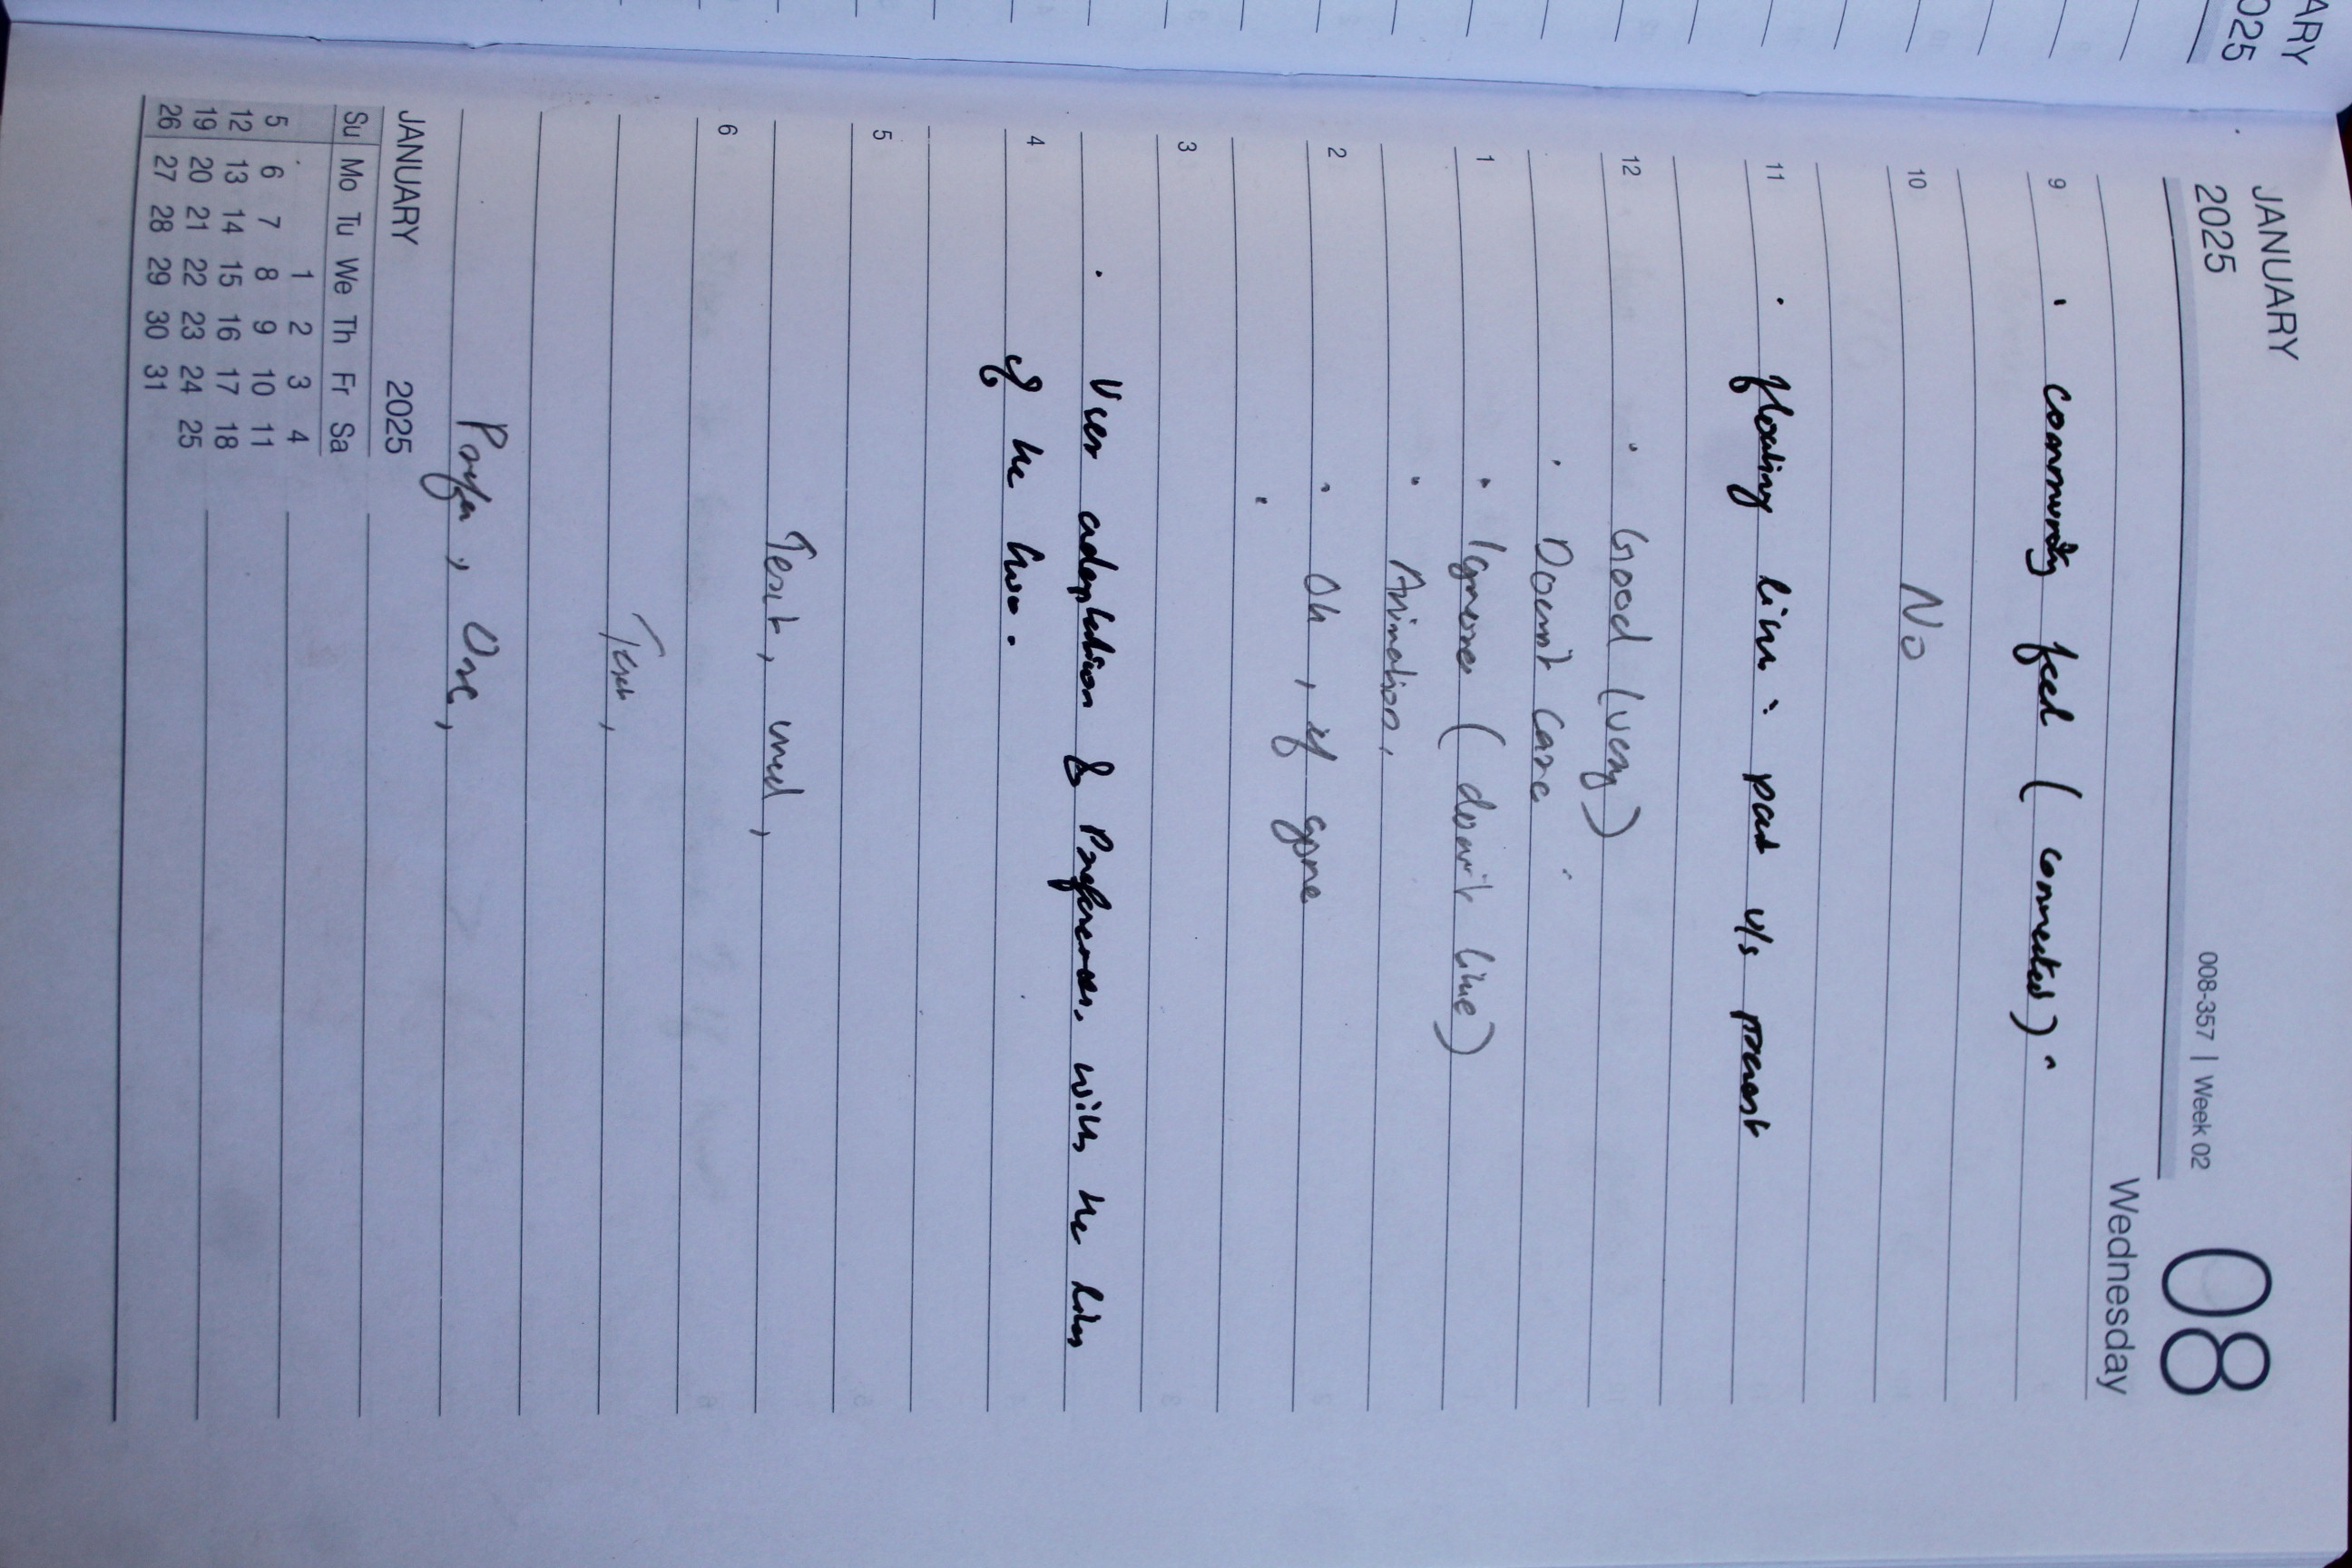 ARY
025
JANUARY
2025
008-357 | Week 02
08
Wednesday
9 · community feed (connected)
10 No
11 · floating : past v/s present
12 · Good (very)
· Doesn't Care
1 · Ignore (doesn't like)
· Animation,
2 · Oh, if gone
·
3
· User adaptation & Preferences, with the
4 of the
5
Text, used,
6
Text,
Prefer, One,
JANUARY 2025
Su Mo Tu We Th Fr Sa
1 2 3 4
5 6 7 8 9 10 11
12 13 14 15 16 17 18
19 20 21 22 23 24 25
26 27 28 29 30 31